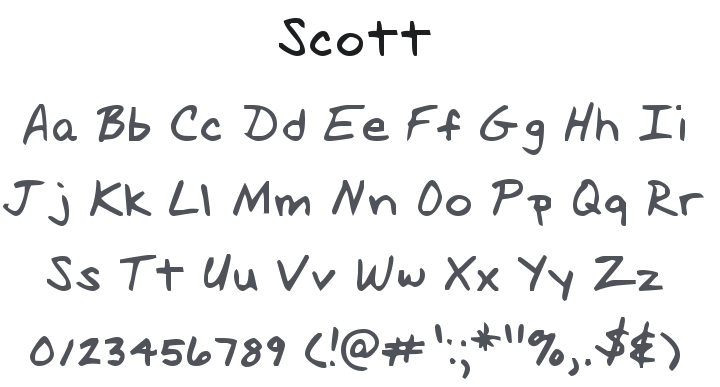 Scott
Aa Bb Cc Dd Ee Ff Gg Hh Ii
Jj Kk Ll Mm Nn Oo Pp Qq Rr
Ss Tt Uu Vv Ww Xx Yy Zz
0123456789 (!@#':;*"%,.$¢)